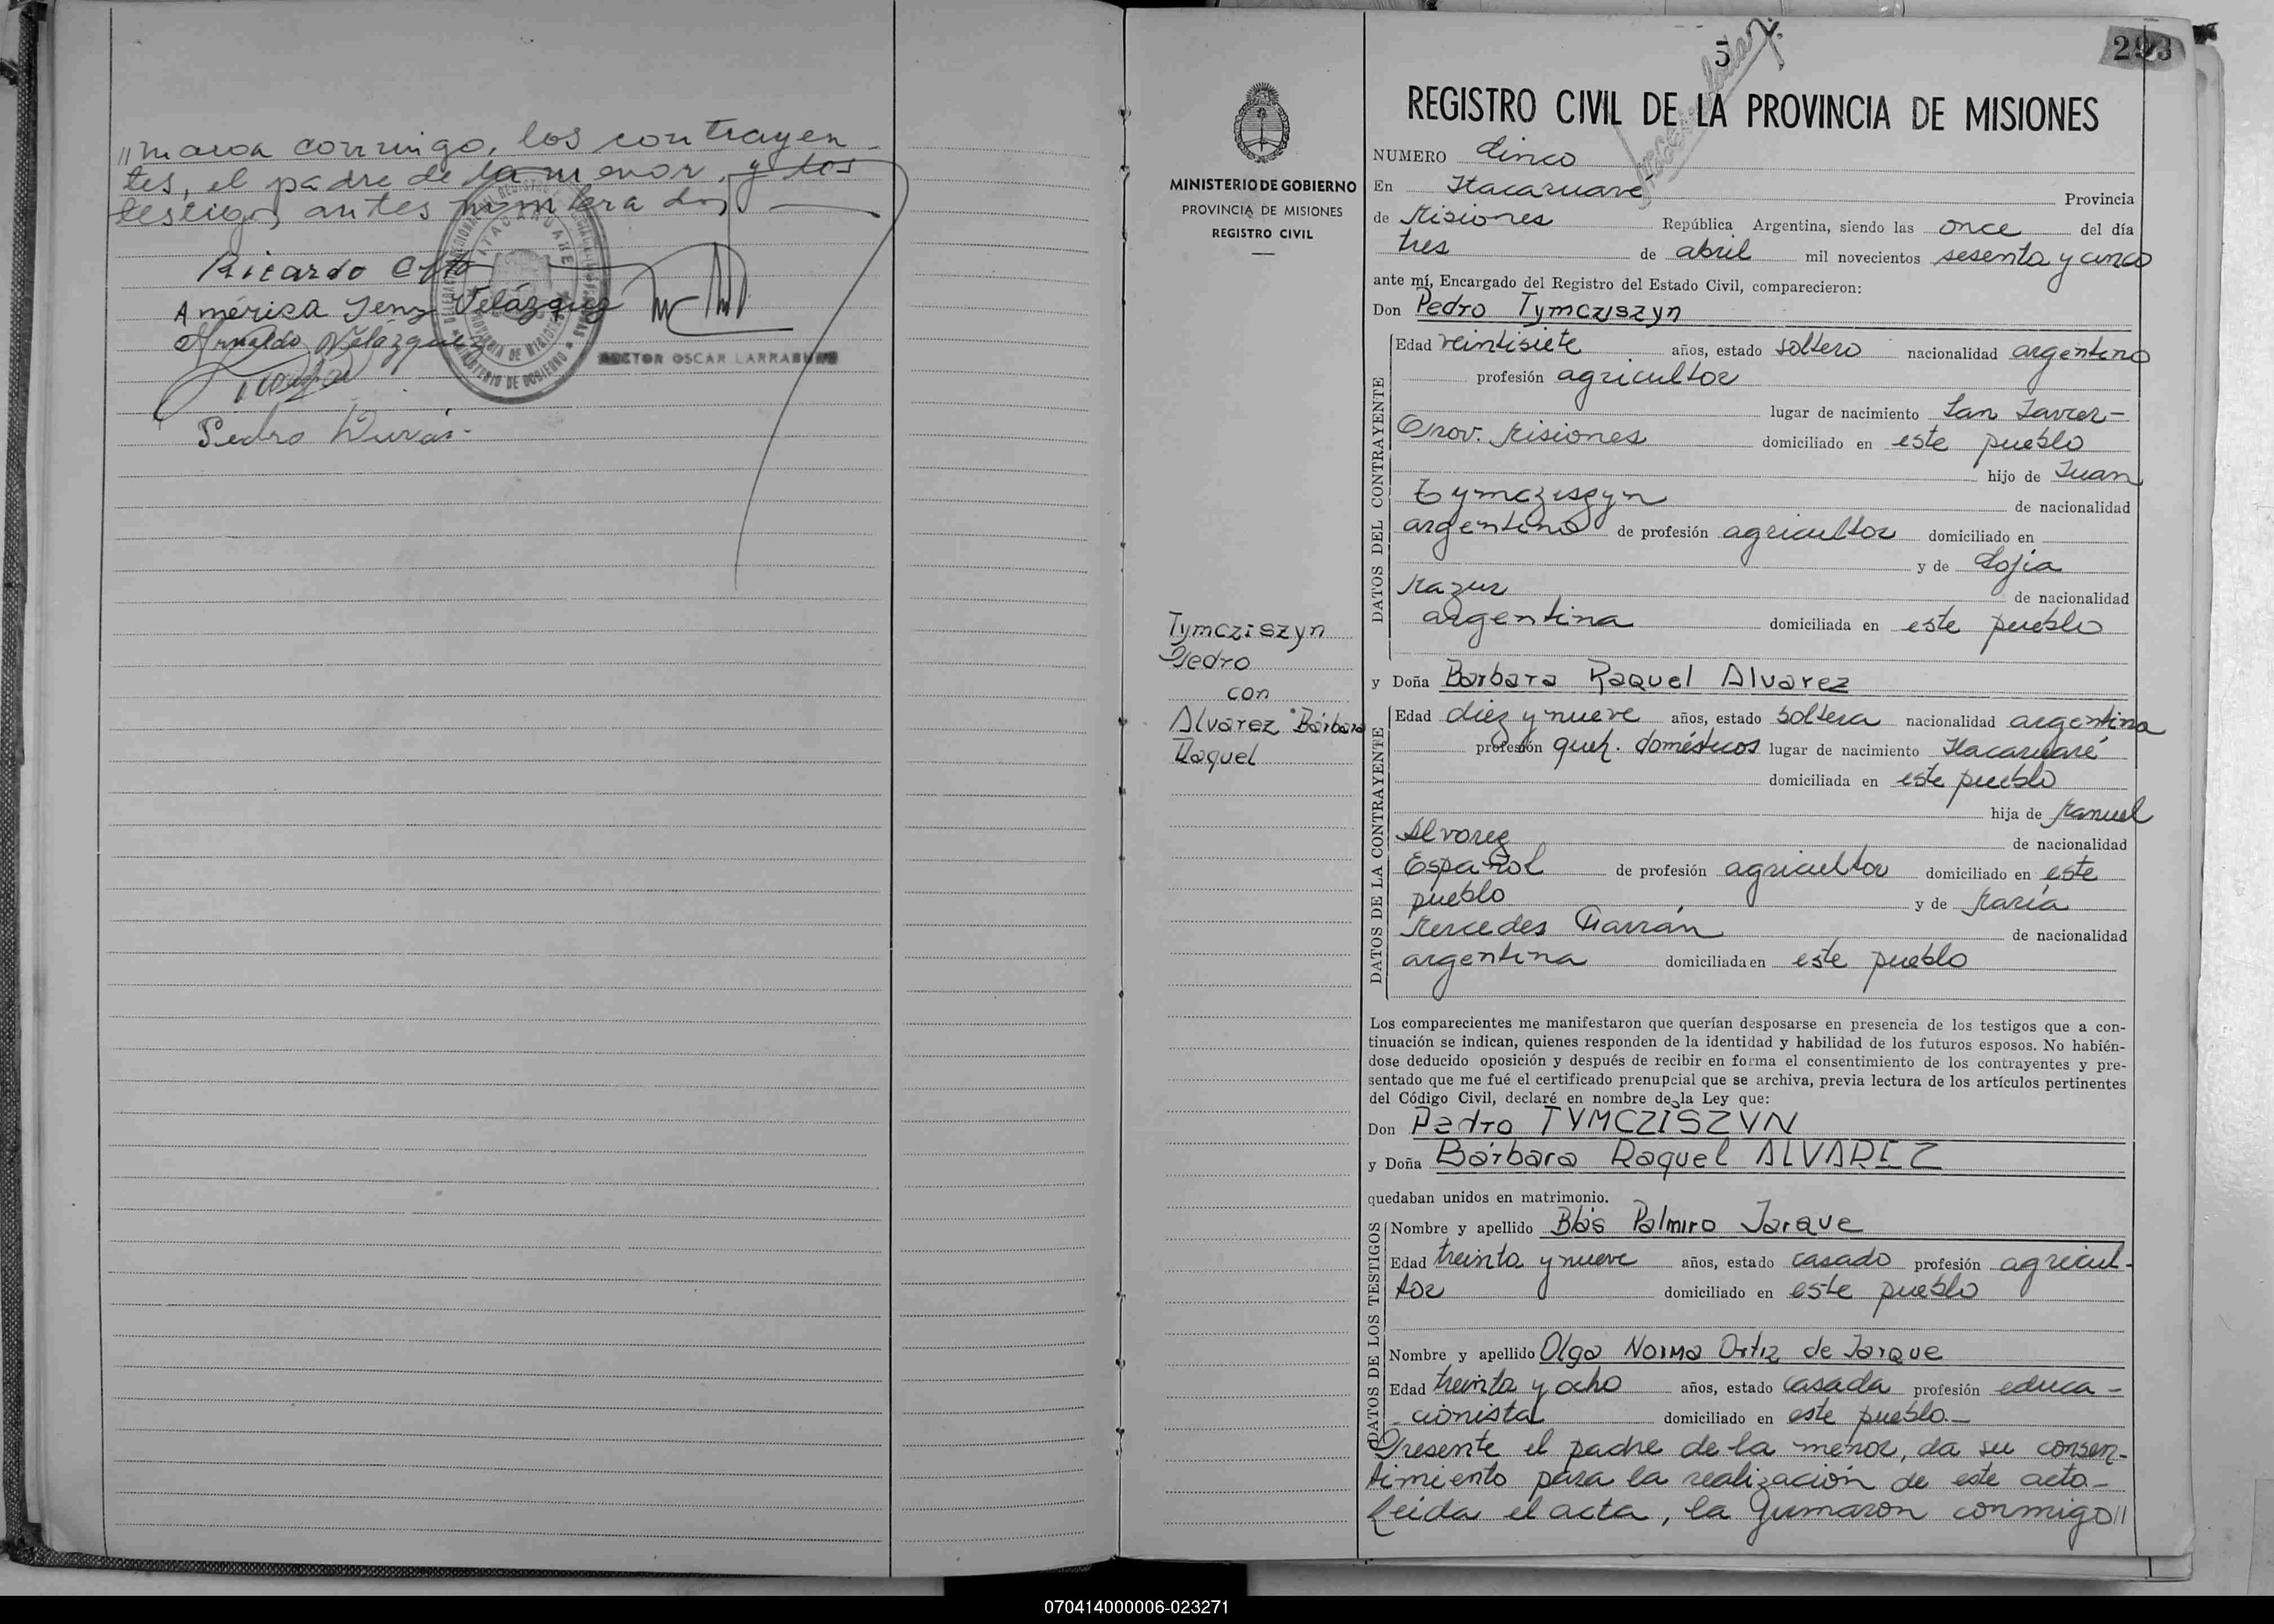 "maron conmigo, los contrayen-
tes, el padre de la menor, y los
testigos antes nombrados
Ricardo
América Velázquez
Arnaldo Velázquez
HECTOR OSCAR LARRABURE
ITACARUARE
PROVINCIA DE MISIONES
MINISTERIO DE GOBIERNO
Pedro Durán
5
293
MINISTERIO DE GOBIERNO
PROVINCIA DE MISIONES
REGISTRO CIVIL
Tymcziszyn
Pedro
con
Alvarez Bárbara
Raquel
REGISTRO CIVIL DE LA PROVINCIA DE MISIONES
NUMERO Cinco
En Itacaruare Provincia
de Misiones República Argentina, siendo las once del día
tres de abril mil novecientos sesenta y cinco
ante mí, Encargado del Registro del Estado Civil, comparecieron:
Don Pedro Tymcziszyn
DATOS DEL CONTRAYENTE
Edad veintisiete años, estado soltero nacionalidad argentino
profesión agricultor
lugar de nacimiento San Javier-
Prov. Misiones domiciliado en este pueblo
hijo de Juan
Tymcziszyn de nacionalidad
argentino de profesión agricultor domiciliado en
y de Sofia
Mazur de nacionalidad
argentina domiciliada en este pueblo
y Doña Barbara Raquel Alvarez
DATOS DE LA CONTRAYENTE
Edad diez y nueve años, estado soltera nacionalidad argentina
profesión queh. domésticos lugar de nacimiento Itacaruaré
domiciliada en este pueblo
hija de Manuel
Alvarez de nacionalidad
Español de profesión agricultor domiciliado en este
pueblo y de María
Mercedes de nacionalidad
argentina domiciliada en este pueblo
Los comparecientes me manifestaron que querían desposarse en presencia de los testigos que a con-
tinuación se indican, quienes responden de la identidad y habilidad de los futuros esposos. No habién-
dose deducido oposición y después de recibir en forma el consentimiento de los contrayentes y pre-
sentado que me fué el certificado prenupcial que se archiva, previa lectura de los artículos pertinentes
del Código Civil, declaré en nombre de la Ley que:
Don Pedro TYMCZISZYN
y Doña Bárbara Raquel ALVAREZ
quedaban unidos en matrimonio.
DATOS DE LOS TESTIGOS
Nombre y apellido Blás Palmiro Jarque
Edad treinta y nueve años, estado casado profesión agricul-
tor domiciliado en este pueblo
Nombre y apellido Olga Norma Ortiz de Jarque
Edad treinta y ocho años, estado casada profesión educa-
cionista domiciliado en este pueblo.-
Presente el padre de la menor, da su consen-
timiento para la realización de este acto-
Leída el acta, la firmaron conmigo"
070414000006-023271